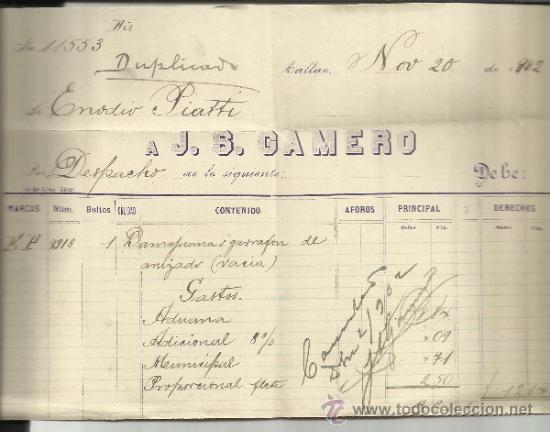 11553
Duplicado
Callao, Nov 20 de 1902
Enodio Piatti
A J. S. CAMERO
Por Despacho de lo siguiente: Debe:
MARCAS Núm. Bultos CALIDAD CONTENIDO AFOROS PRINCIPAL DERECHOS
Soles Cts.
E P 2915 1 Damajuana ó garrafon de
anizado (vacia)
Gastos.
Aduana
Adicional 8% 09
Municipal 71
Proporcional flete 2,50
Cancelado
todocoleccion
www.todocoleccion.net